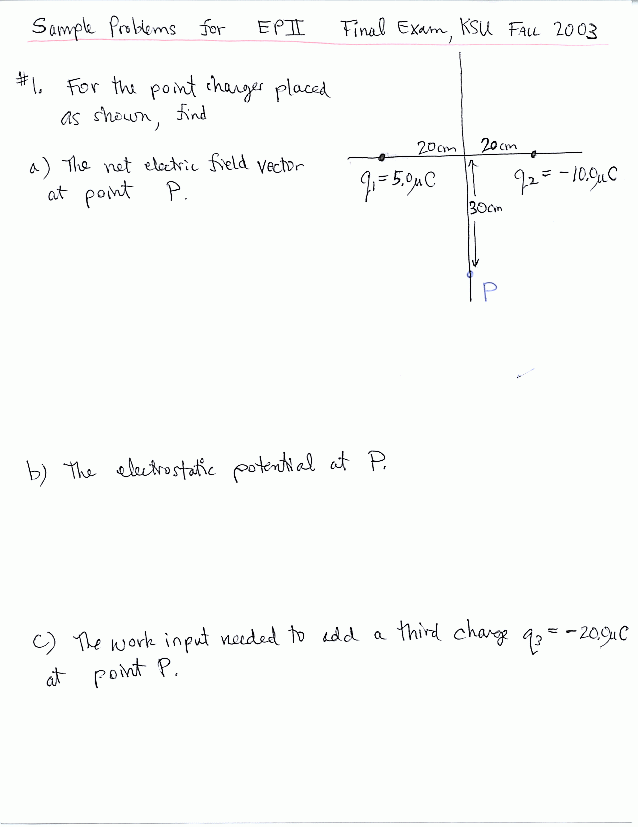 Sample Problems for EPII Final Exam, KSU FALL 2003
#1. For the point charges placed
as shown, find
a) The net electric field vector
at point P.
20cm 20cm
q₁=5.0μC q₂=-10.0μC
30cm
P
b) The electrostatic potential at P.
c) The work input needed to add a third charge q₃=-20.0μC
at point P.